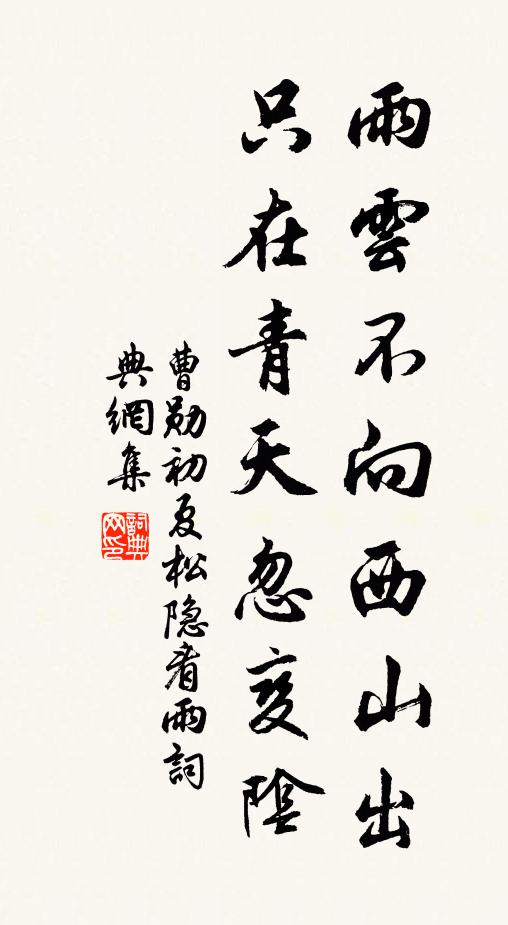 雨雲不向西山出
只在青天忽変陰
曹勛初夏松隱看雨詞
典網集
詞典
网印